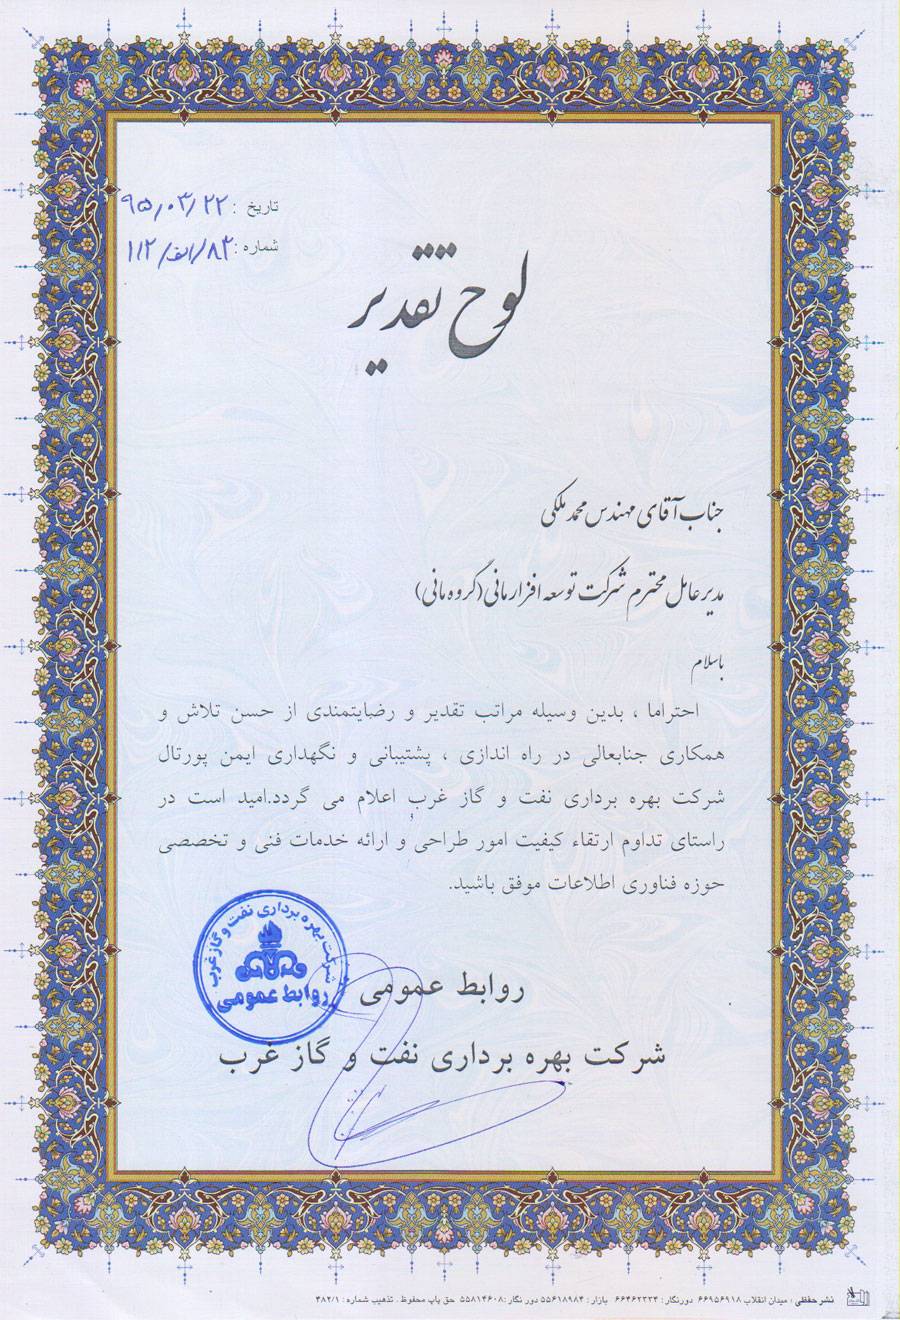 تاریخ : ۹۵/۰۳/۲۲
شماره : ۱۱۲/الف/۸۳
لوح تقدیر
جناب آقای مهندس محمد ملکی
مدیرعامل محترم شرکت توسعه افزار مانی (گروه مانی)
باسلام
احتراما ، بدین وسیله مراتب تقدیر و رضایتمندی از حسن تلاش و
همکاری جنابعالی در راه اندازی ، پشتیبانی و نگهداری ایمن پورتال
شرکت بهره برداری نفت و گاز غرب اعلام می گردد.امید است در
راستای تداوم ارتقاء کیفیت امور طراحی و ارائه خدمات فنی و تخصصی
حوزه فناوری اطلاعات موفق باشید.
شرکت بهره برداری نفت و گاز غرب
روابط عمومی
روابط عمومی
شرکت بهره برداری نفت و گاز غرب
نشر حفظی : میدان انقلاب ۶۶۹۵۶۹۱۸ دورنگار : ۶۶۴۶۲۳۳۴ بازار : ۵۵۶۱۸۹۸۴ دور نگار :۵۵۸۱۴۶۰۸ حق چاپ محفوظ . تذهیب شماره : ۴۸۲/۱